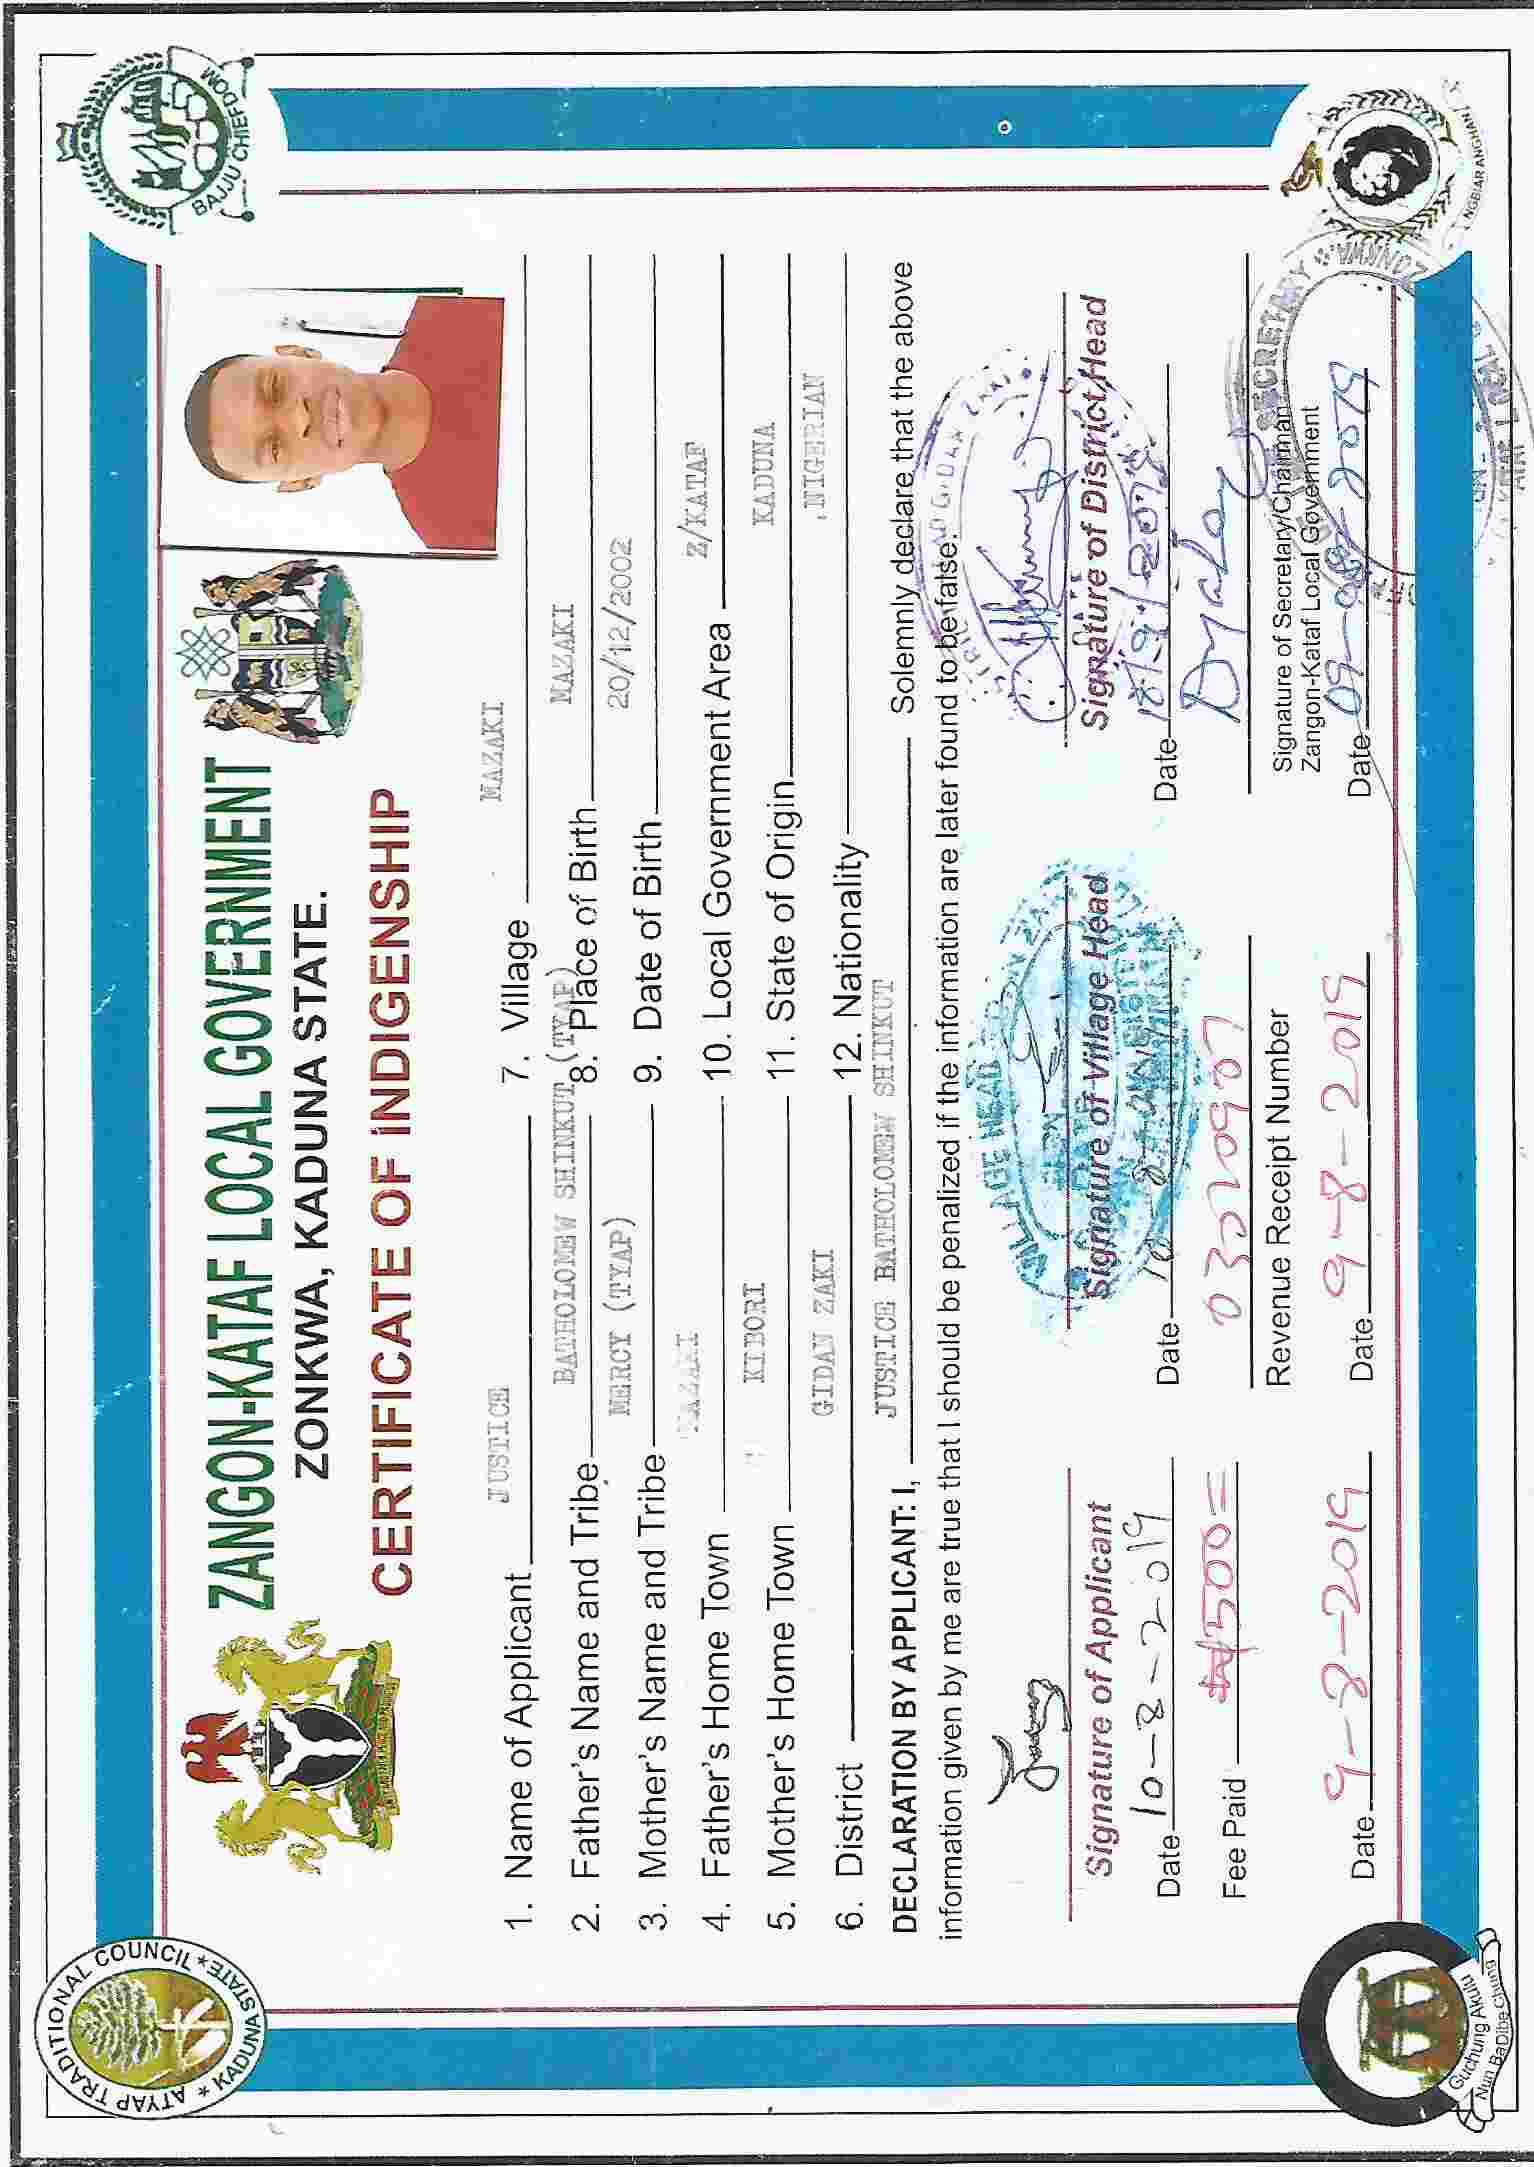 ATYAP TRADITIONAL COUNCIL
* KADUNA STATE *
BAJJU CHIEFDOM
ZANGON-KATAF LOCAL GOVERNMENT
ZONKWA, KADUNA STATE.
CERTIFICATE OF INDIGENSHIP
1. Name of Applicant JUSTICE
2. Father's Name and Tribe BATHOLOMEW SHINKUT (TYAP)
3. Mother's Name and Tribe MERCY (TYAP)
4. Father's Home Town MAZAKI
5. Mother's Home Town KIBORI
6. District GIDAN ZAKI
7. Village MAZAKI
8. Place of Birth MAZAKI
9. Date of Birth 20/12/2002
10. Local Government Area Z/KATAF
11. State of Origin KADUNA
12. Nationality NIGERIAN
DECLARATION BY APPLICANT: I, JUSTICE BATHOLOMEW SHINKUT Solemnly declare that the above
information given by me are true that I should be penalized if the information are later found to be false.
Signature of Applicant
Date 10-8-2019
VILLAGE HEAD
Signature of Village Head
Date
GIDAN ZAKI
Signature of District Head
Date
Fee Paid ₦500=
0320907
Revenue Receipt Number
Signature of Secretary/Chairman
Zangon-Kataf Local Government
SECRETARY
ZONKWA
Date 9-8-2019
Date 9-8-2019
Date 09-08-2019
Guchung Akulu
Nun BaDibe Chung
NGBIAR ANGHAN